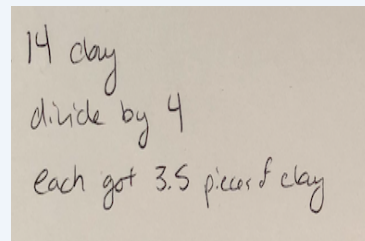 14 clay
divide by 4
each got 3.5 pieces of clay